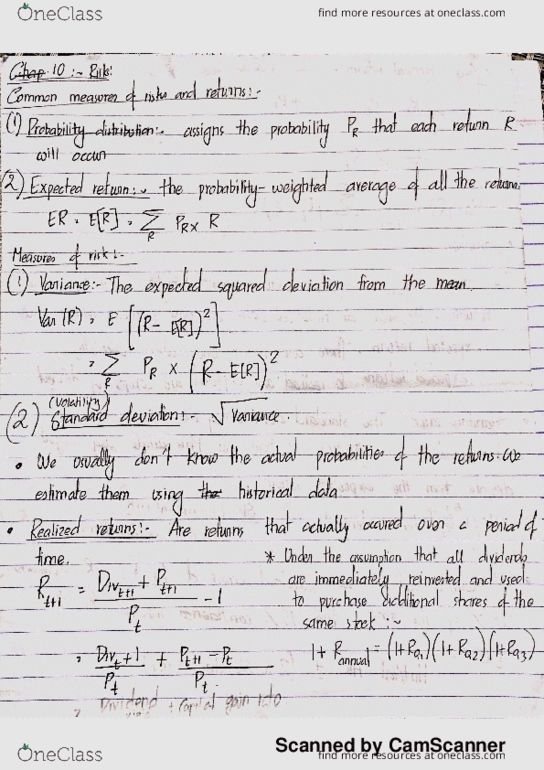 OneClass
find more resources at oneclass.com
Chap 10 :- Risk:
Common measures of risks and returns :-
(1) Probability distribution:- assigns the probability P_R that each return R
will occur
(2) Expected return:- the probability-weighted average of all the returns.
ER = E[R] = Σ_R P_R × R
Measures of risk:-
(1) Variance:- The expected squared deviation from the mean
Var (R) = E [(R - E[R])²]
= Σ_R P_R × (R - E[R])²
(volatility)
(2) Standard deviation:- √Variance.
• We usually don't know the actual probabilities of the returns. We
estimate them using the historical data
• Realized returns:- Are returns that actually occured over a period of
time.
R_t+1 = (Div_t+1 + P_t+1) / P_t - 1
= Div_t+1 / P_t + (P_t+1 - P_t) / P_t
= Dividend + Capital gain
* Under the assumption that all dividends
are immediately reinvested and used
to purchase additional shares of the
same stock :-
1 + R_annual = (1+R_Q1)(1+R_Q2)(1+R_Q3)
Scanned by CamScanner
OneClass
find more resources at oneclass.com